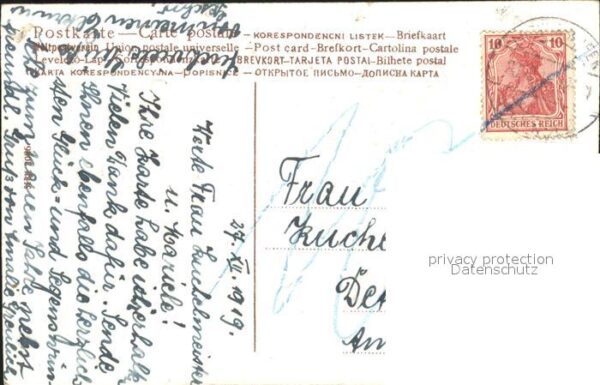 Postkarte – Carte postale – KORESPONDENČNI LISTEK – Briefkaart
Weltpostverein – Union postale universelle – Post card – Brefkort – Cartolina postale
Levelező-Lap – Correspondenzkarte – BREVKORT – TARJETA POSTAL – Bilhete postal
KARTA KORESPONDENCYJNA – DOPISNICE – ОТКРЫТОЕ ПИСЬМО – ДОПИСНАЯ КАРТА
10 10
DEUTSCHES REICH
27. XII. 1919.
Werte Frau Kuchelmeister
u. Mariele!
Ihre Karte habe ich erhalten
Vielen Dank dafür. Sende
Ihnen ebenfalls die herzlich
sten Glück- und Segenswün
sche zum neuen Jahr, nebst
freundl. Gruß von Amalie
Frau
Kuche
An
privacy protection
Datenschutz